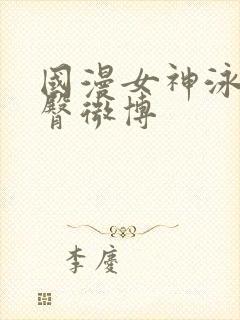 國漫女神泳
臀微博
李慶